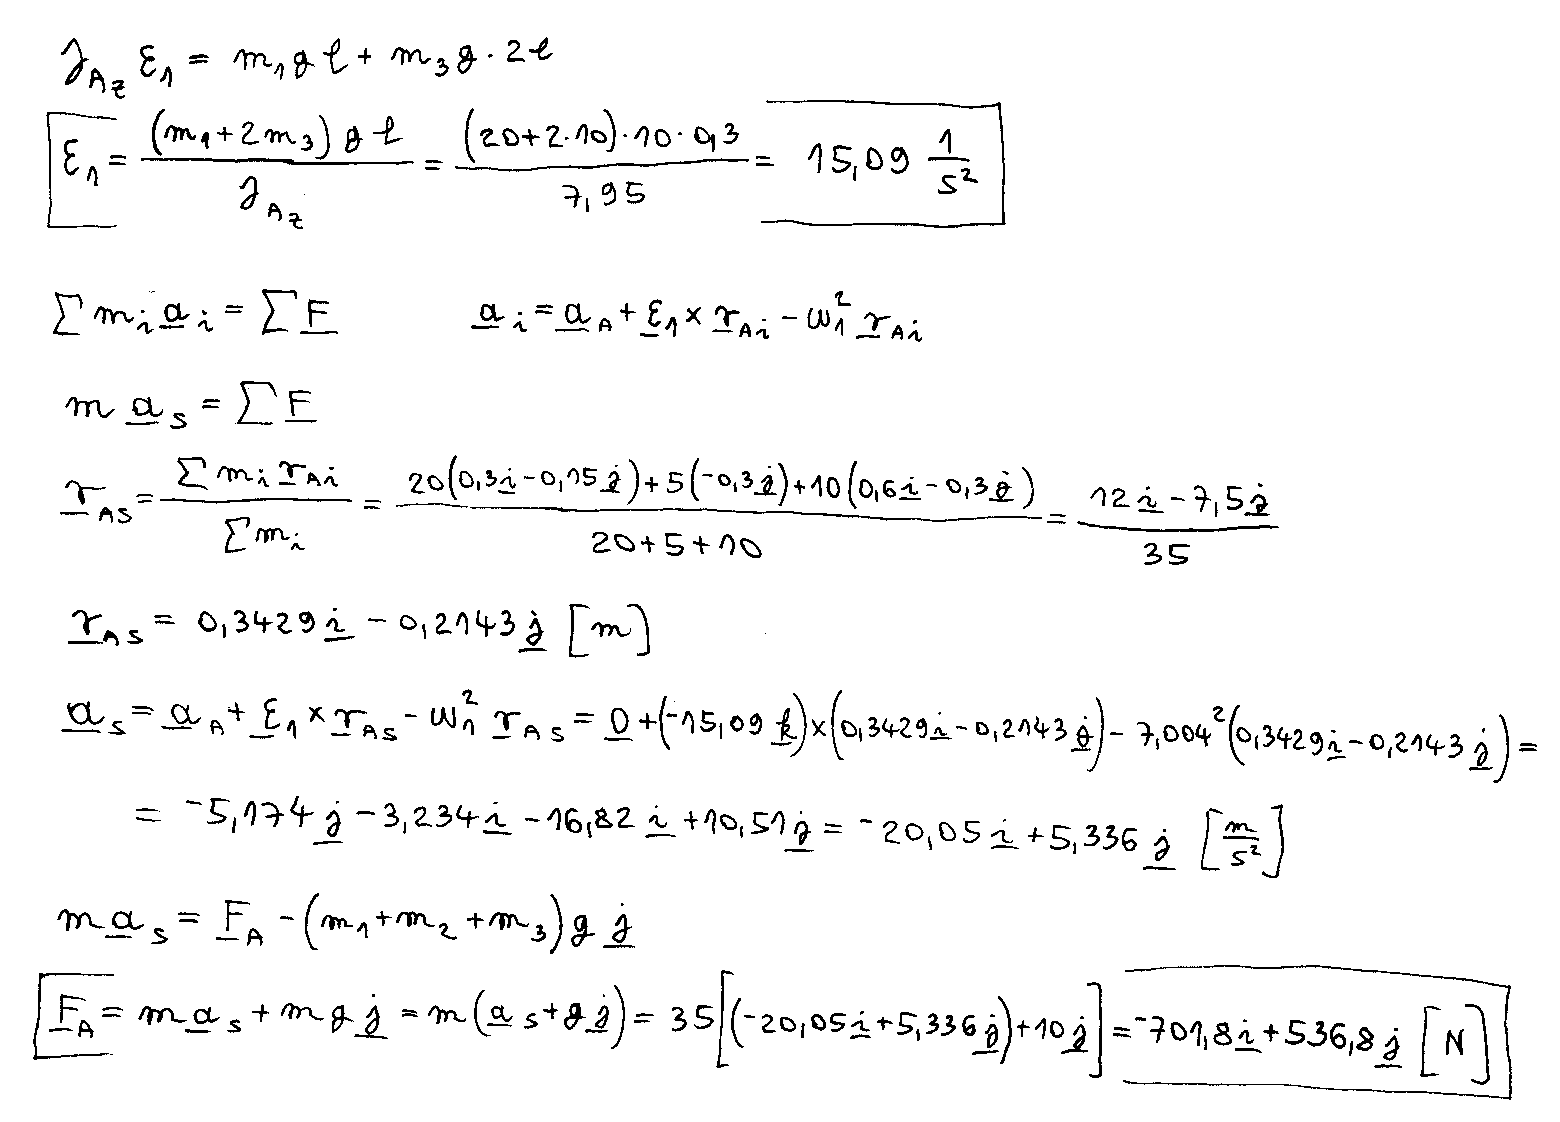 J_Az ε₁ = m₁ g l + m₃ g · 2l
ε₁ = (m₁ + 2m₃) g l / J_Az = (20 + 2·10)·10·0,3 / 7,95 = 15,09 1/s²
Σ m_i a_i = Σ F    a_i = a_A + ε₁ × r_Ai − ω₁² r_Ai
m a_s = Σ F
r_AS = Σ m_i r_Ai / Σ m_i = 20(0,3i − 0,15j) + 5(−0,3j) + 10(0,6i − 0,3j) / 20+5+10 = 12i − 7,5j / 35
r_AS = 0,3429i − 0,2143j [m]
a_s = a_A + ε₁ × r_AS − ω₁² r_AS = 0 + (−15,09 k) × (0,3429i − 0,2143j) − 7,004² (0,3429i − 0,2143j) =
= −5,174j − 3,234i − 16,82i + 10,51j = −20,05i + 5,336j [m/s²]
m a_s = F_A − (m₁ + m₂ + m₃) g j
F_A = m a_s + m g j = m(a_s + g j) = 35[(−20,05i + 5,336j) + 10j] = −701,8i + 536,8j [N]